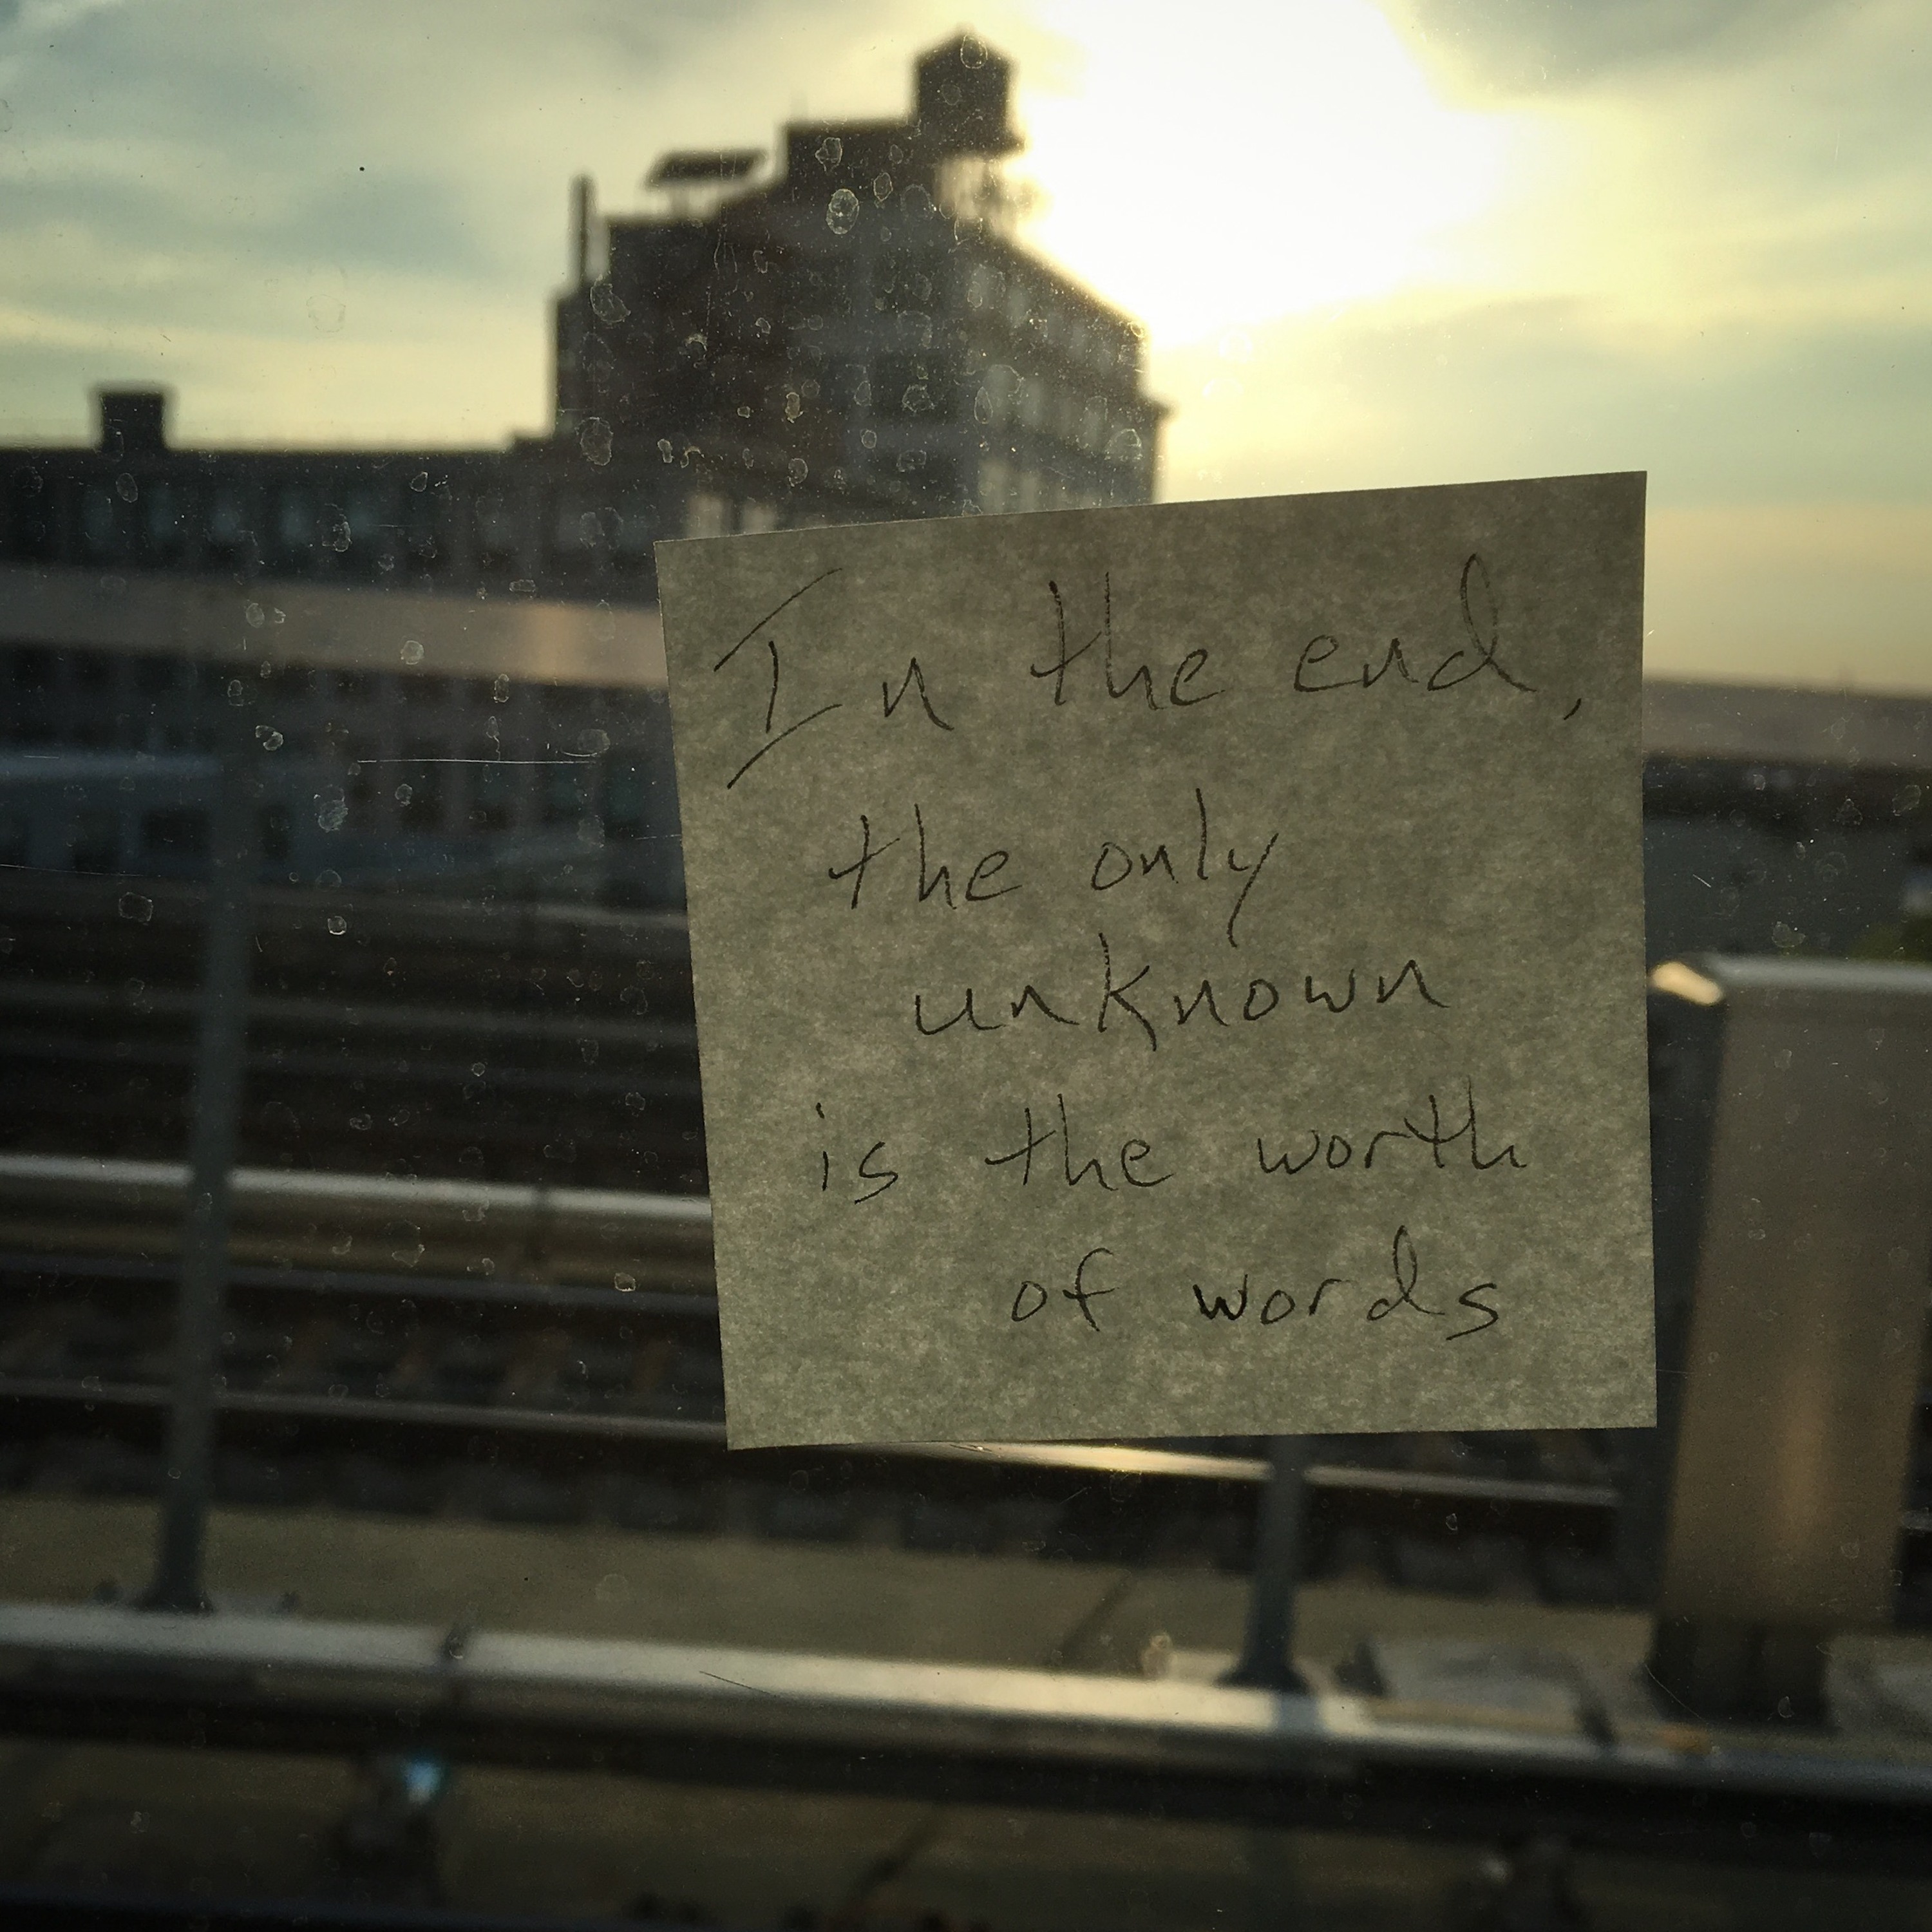 In the end,
the only
unknown
is the worth
of words